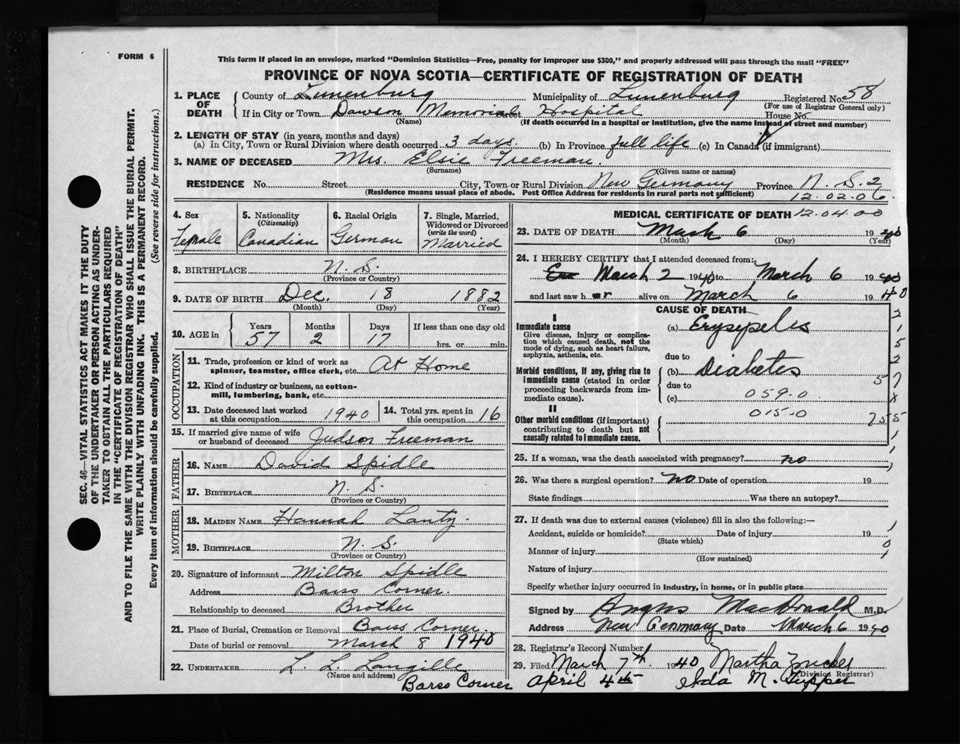 FORM 6
This form if placed in an envelope, marked "Dominion Statistics—Free, penalty for improper use $300," and properly addressed will pass through the mail "FREE"
PROVINCE OF NOVA SCOTIA—CERTIFICATE OF REGISTRATION OF DEATH
1. PLACE OF DEATH County of Lunenburg Municipality of Lunenburg Registered No. 58
(For use of Registrar General only)
If in City or Town Dawson Memorial Hospital House No.
(Name) (If death occurred in a hospital or institution, give the name instead of street and number)
2. LENGTH OF STAY (in years, months and days)
(a) In City, Town or Rural Division where death occurred 3 days. (b) In Province full life (c) In Canada (if immigrant)
3. NAME OF DECEASED Mrs. Elsie Freeman.
(Surname) (Given name or names)
RESIDENCE No. Street City, Town or Rural Division New Germany Province N. S. 2
(Residence means usual place of abode. Post Office Address for residents in rural parts not sufficient) 12.02.06
4. Sex Female
5. Nationality (Citizenship) Canadian
6. Racial Origin German
7. Single, Married, Widowed or Divorced (write the word) Married
8. BIRTHPLACE N. S.
(Province or Country)
9. DATE OF BIRTH Dec. 18 1882
(Month) (Day) (Year)
10. AGE in Years 57 Months 2 Days 17 If less than one day old hrs. or min.
OCCUPATION
11. Trade, profession or kind of work as spinner, teamster, office clerk, etc. At Home
12. Kind of industry or business, as cotton-mill, lumbering, bank, etc.
13. Date deceased last worked at this occupation 1940 14. Total yrs. spent in this occupation 16
15. If married give name of wife or husband of deceased Judson Freeman
FATHER
16. NAME David Spidle
17. BIRTHPLACE N. S.
(Province or Country)
MOTHER
18. MAIDEN NAME Hannah Lantz.
19. BIRTHPLACE N. S.
(Province or Country)
20. Signature of informant Milton Spidle
Address Barss Corner.
Relationship to deceased Brother
21. Place of Burial, Cremation or Removal Barss Corner
Date of burial or removal March 8 1940
22. UNDERTAKER L. L. Langille
(Name and address)
Barss Corner
MEDICAL CERTIFICATE OF DEATH 12.04.00
23. DATE OF DEATH March 6 19 40
(Month) (Day) (Year)
24. I HEREBY CERTIFY that I attended deceased from:
March 2 1940 to March 6 19 40
and last saw her alive on March 6 19 40
CAUSE OF DEATH
I
Immediate cause
Give disease, injury or complication which caused death, not the mode of dying, such as heart failure, asphyxia, asthenia, etc.
(a) Erysypelis
due to
Morbid conditions, if any, giving rise to immediate cause (stated in order proceeding backwards from immediate cause).
(b) Diabetes
due to
(c) 059.0
II
015.0
Other morbid conditions (if important) contributing to death but not causally related to immediate cause.
25. If a woman, was the death associated with pregnancy? no
26. Was there a surgical operation? no Date of operation 19
State findings Was there an autopsy?
27. If death was due to external causes (violence) fill in also the following:—
Accident, suicide or homicide? Date of injury 19
(State which)
Manner of injury
(How sustained)
Nature of injury
Specify whether injury occurred in industry, in home, or in public place
Signed by Angus MacDonald M.D.
Address New Germany Date March 6 1940
28. Registrar's Record Number
29. Filed March 7th 1940 Martha Zwicker
(Division Registrar)
April 4th Ada M. Tupper
SEC. 46—VITAL STATISTICS ACT MAKES IT THE DUTY
OF THE UNDERTAKER OR PERSON ACTING AS UNDER-
TAKER TO OBTAIN ALL THE PARTICULARS REQUIRED
IN THE "CERTIFICATE OF REGISTRATION OF DEATH"
AND TO FILE THE SAME WITH THE DIVISION REGISTRAR WHO SHALL ISSUE THE BURIAL PERMIT.
WRITE PLAINLY WITH UNFADING INK. THIS IS A PERMANENT RECORD.
Every item of information should be carefully supplied. (See reverse side for instructions.)